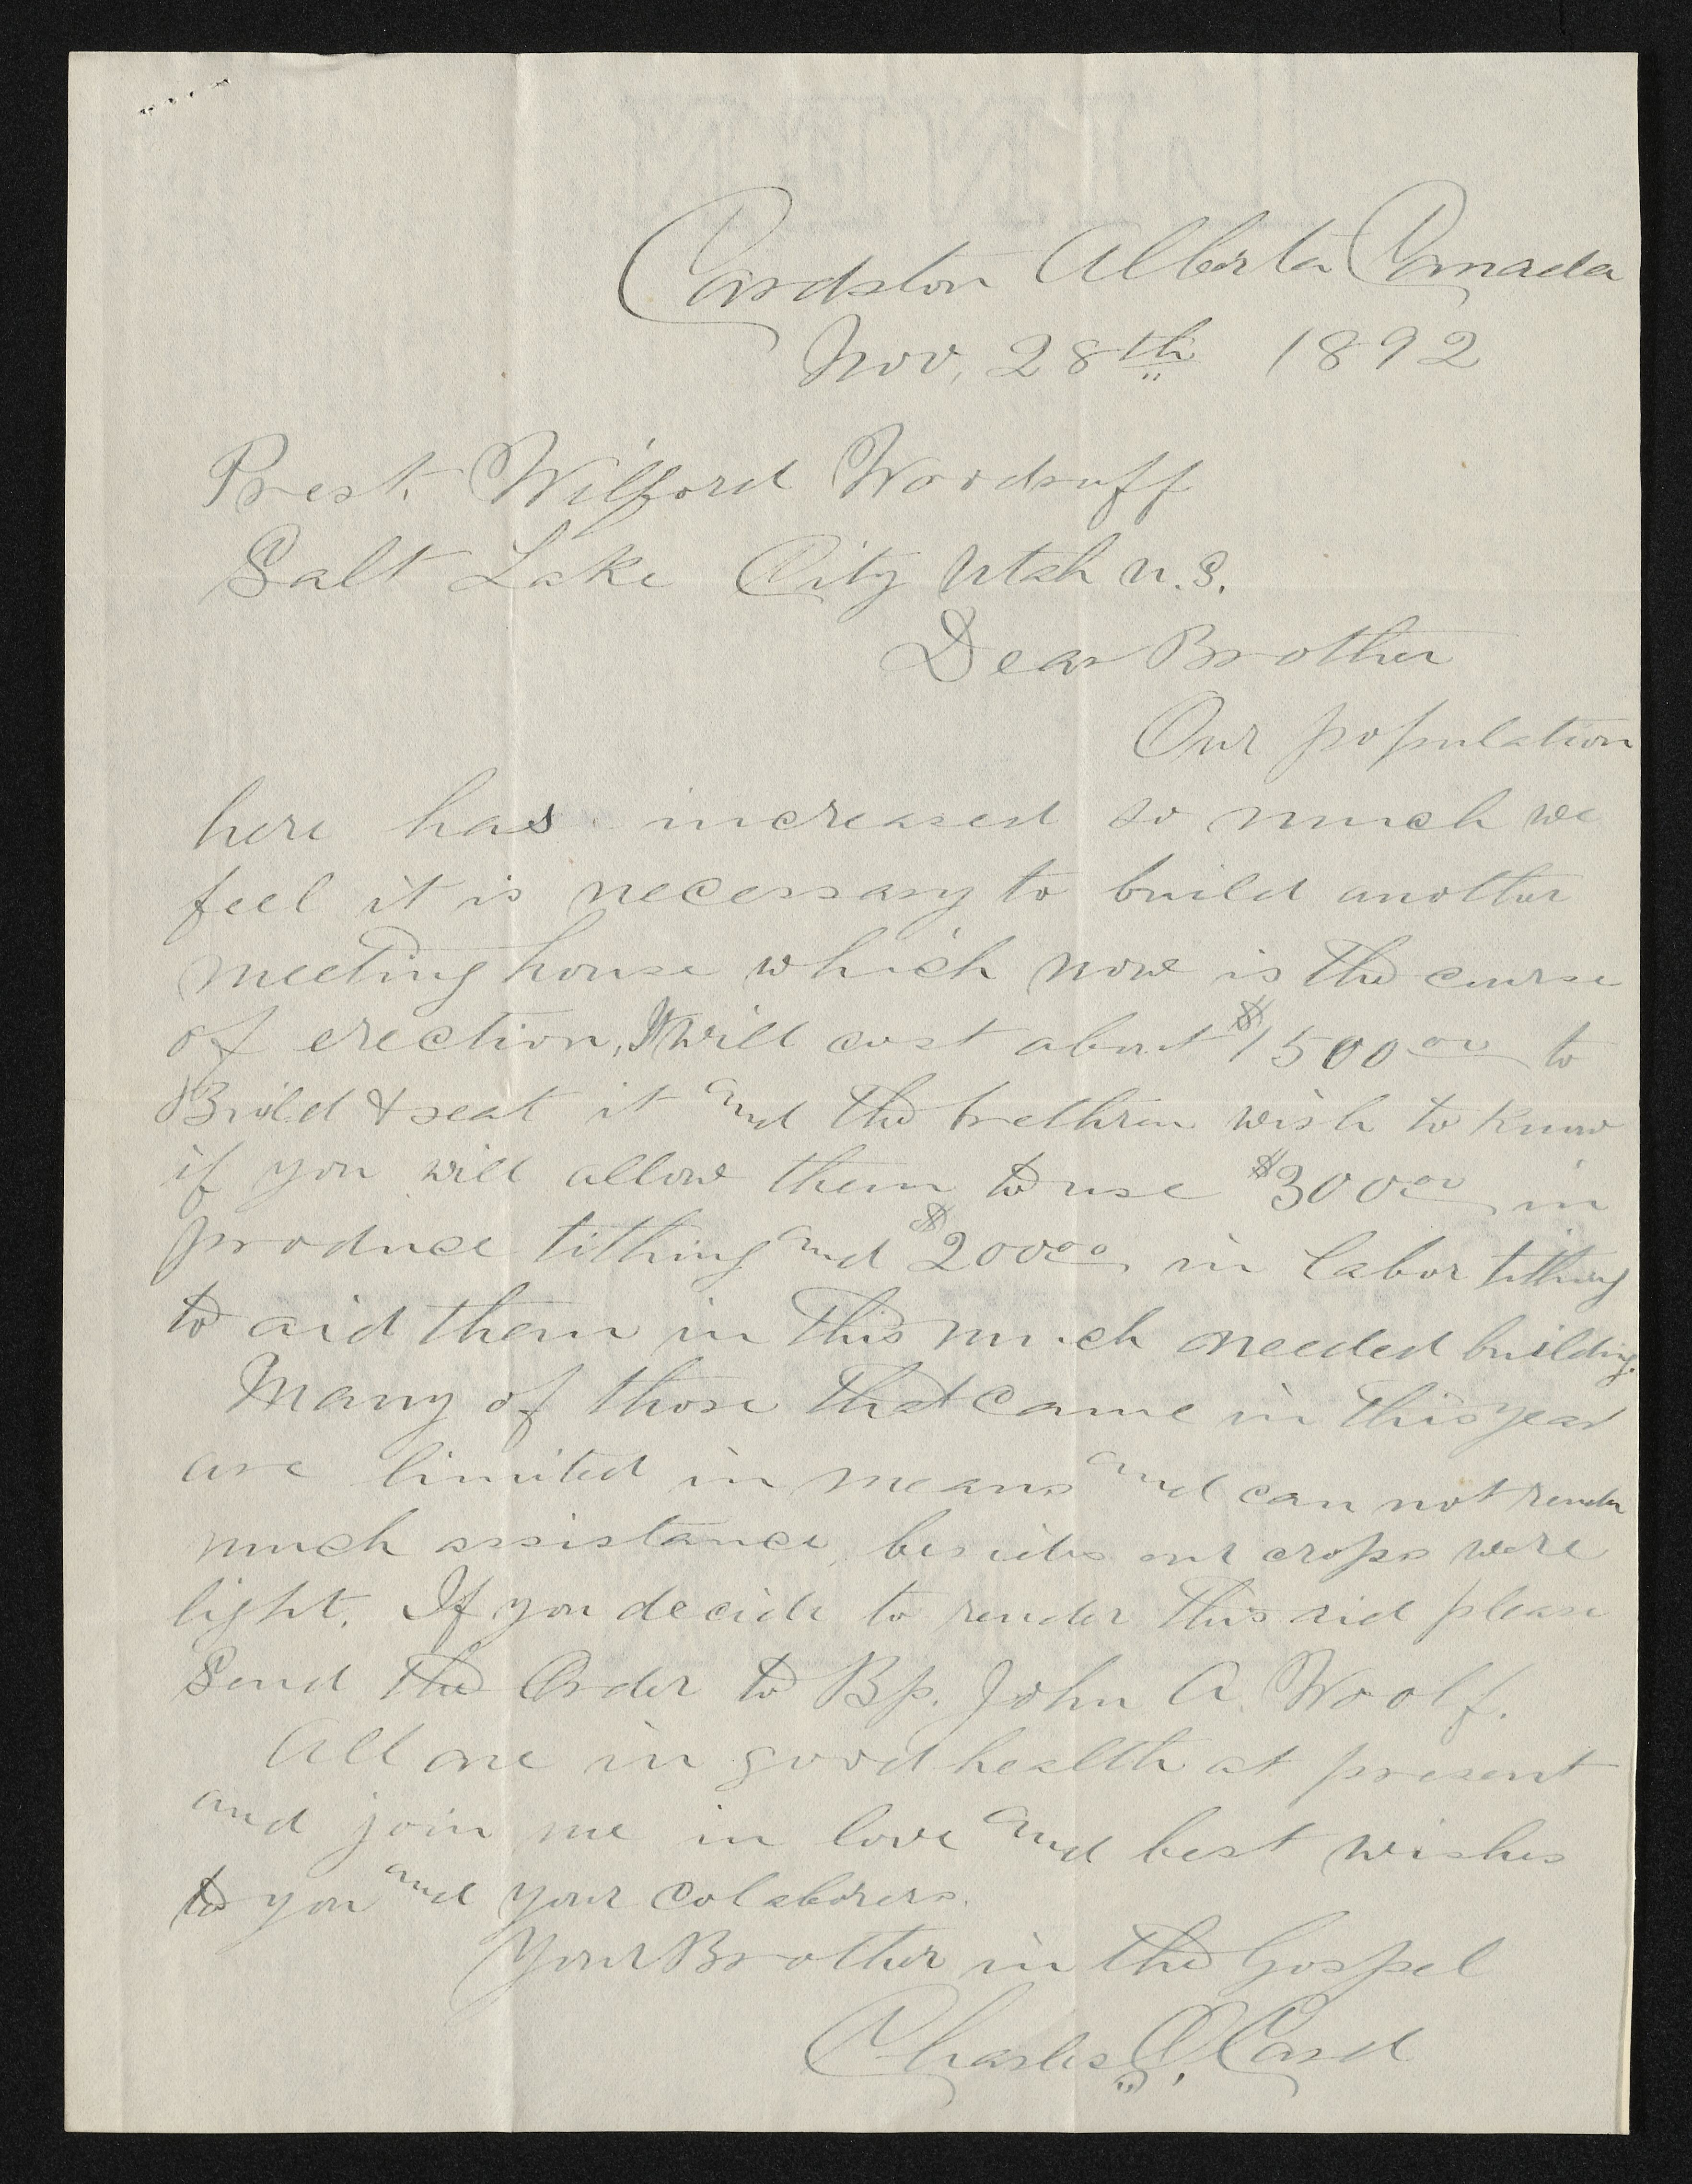 Cardston Alberta Canada
Nov. 28th 1892
Prest. Wilford Woodruff
Salt Lake City Utah U.S.
Dear Brother
Our population
here has increased so much we
feel it is necessary to build another
meeting house which now is the course
of erection, It will cost about $1500.00 to
Build & seat it and the brethren wish to know
if you will allow them to use $300.00 in
produce tithing and $200.00 in labor tithing
to aid them in this much needed building.
Many of those that came in this year
are limited in means and can not render
much assistance, besides our crops were
light. If you decide to render this aid please
Send the Order to Bp. John A. Woolf.
All are in good health at present
and join me in love and best wishes
to you and your colaborers.
Your Brother in the Gospel
Charles O. Card